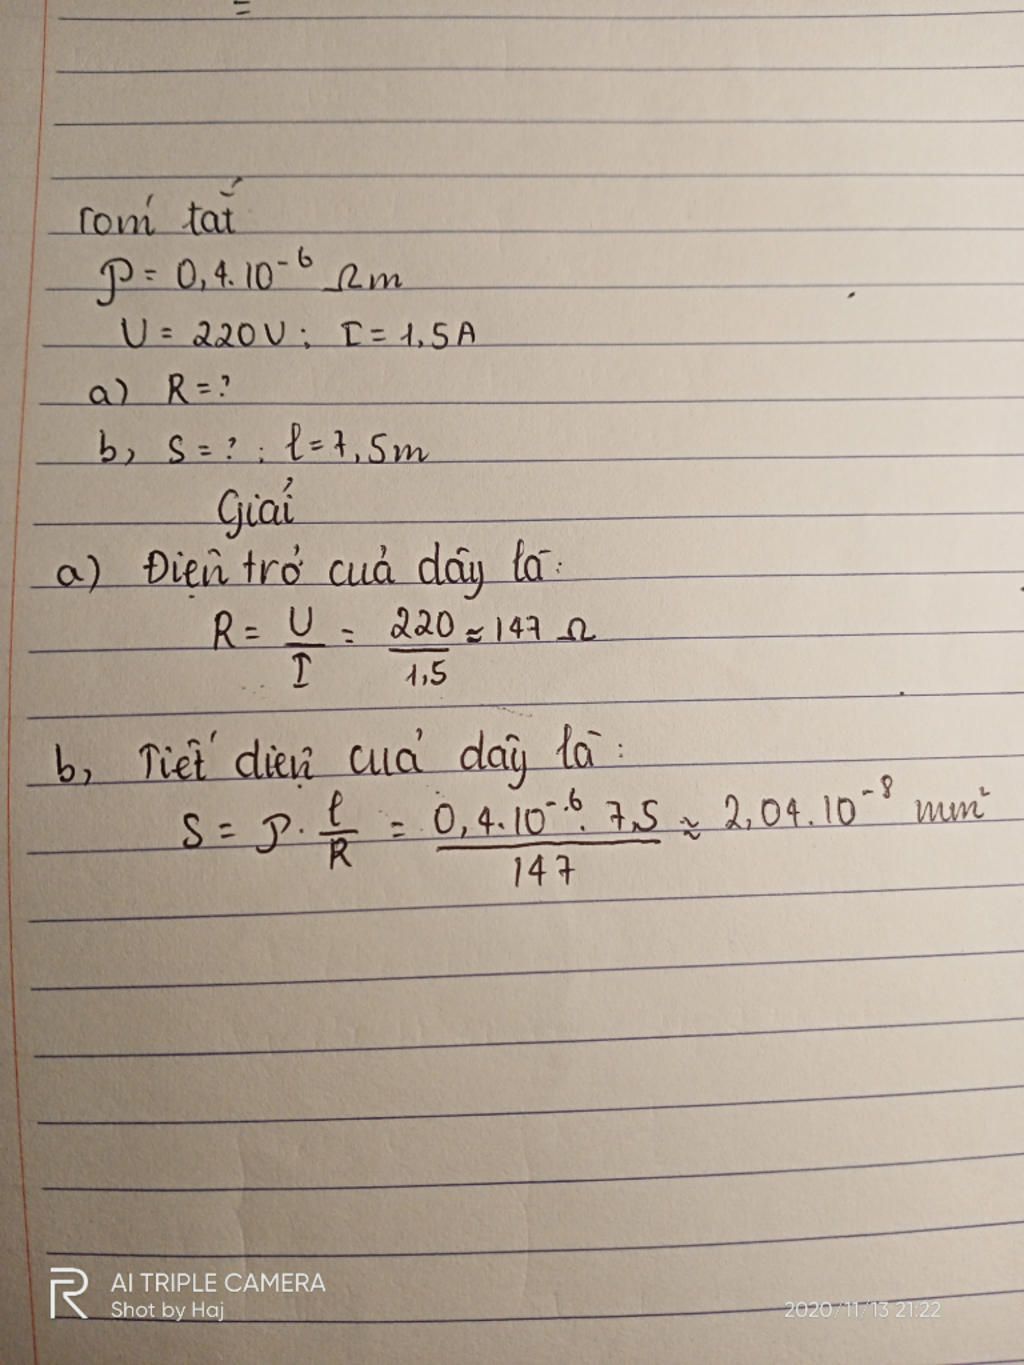 =
Tóm tắt
ρ = 0,4.10⁻⁶ Ωm
U = 220V ; I = 1,5A
a) R = ?
b, S = ? ; l = 7,5m
Giải
a) Điện trở của dây là:
R = U/I = 220/1,5 ≈ 147 Ω
b, Tiết diện của dây là:
S = ρ. l/R = 0,4.10⁻⁶. 7,5/147 ≈ 2,04.10⁻⁸ mm²
AI TRIPLE CAMERA
Shot by Haj
2020/11/13 21:22